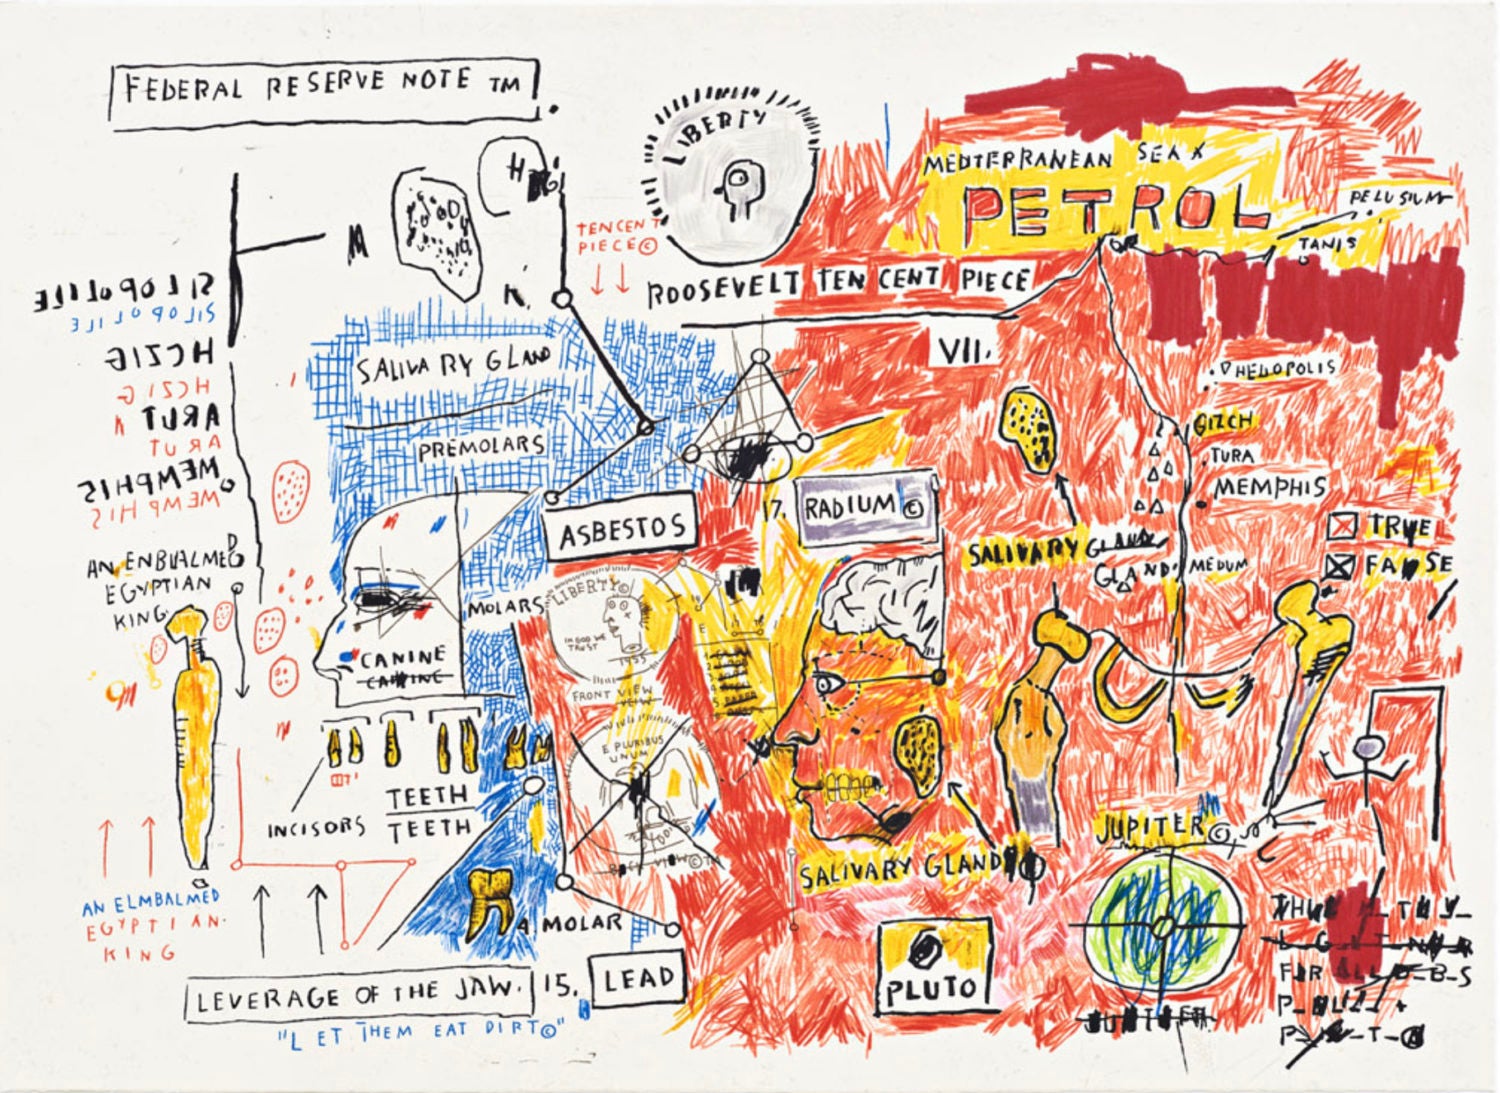 FEDERAL RESERVE NOTE TM
LIBERTY
TENCENT
PIECE©
ROOSEVELT TEN CENT PIECE
VII.
MEDTERRANEAN SEA X
PETROL
PELUSIUM
TANIS
HELIOPOLIS
GIZCH
TURA
MEMPHIS
MEDUM
SILOPOLIE
HCZIG
HCZIG
ARUT
ARUT
MEMPHIS
MEMPHIS
SALIVARY GLAND
PREMOLARS
ASBESTOS
17.
RADIUM ©
SALIVARY GLAND
GLAND
TRUE
FALSE
AN ENBUALMED
EGYPTIAN
KING
MOLARS
CANINE
CANINE
LIBERTY©
IN GOD WE
TRUST
1955
FRONT VIEW
VIEW
E PLURIBUS
UNUM
BACK VIEW©
INCISORS
TEETH
TEETH
SALIVARY GLAND
JUPITER©
JUPITER
AN ELMBALMED
EGYPTIAN
KING
A MOLAR
LEVERAGE OF THE JAW.
15.
LEAD
PLUTO
"LET THEM EAT DIRT©"